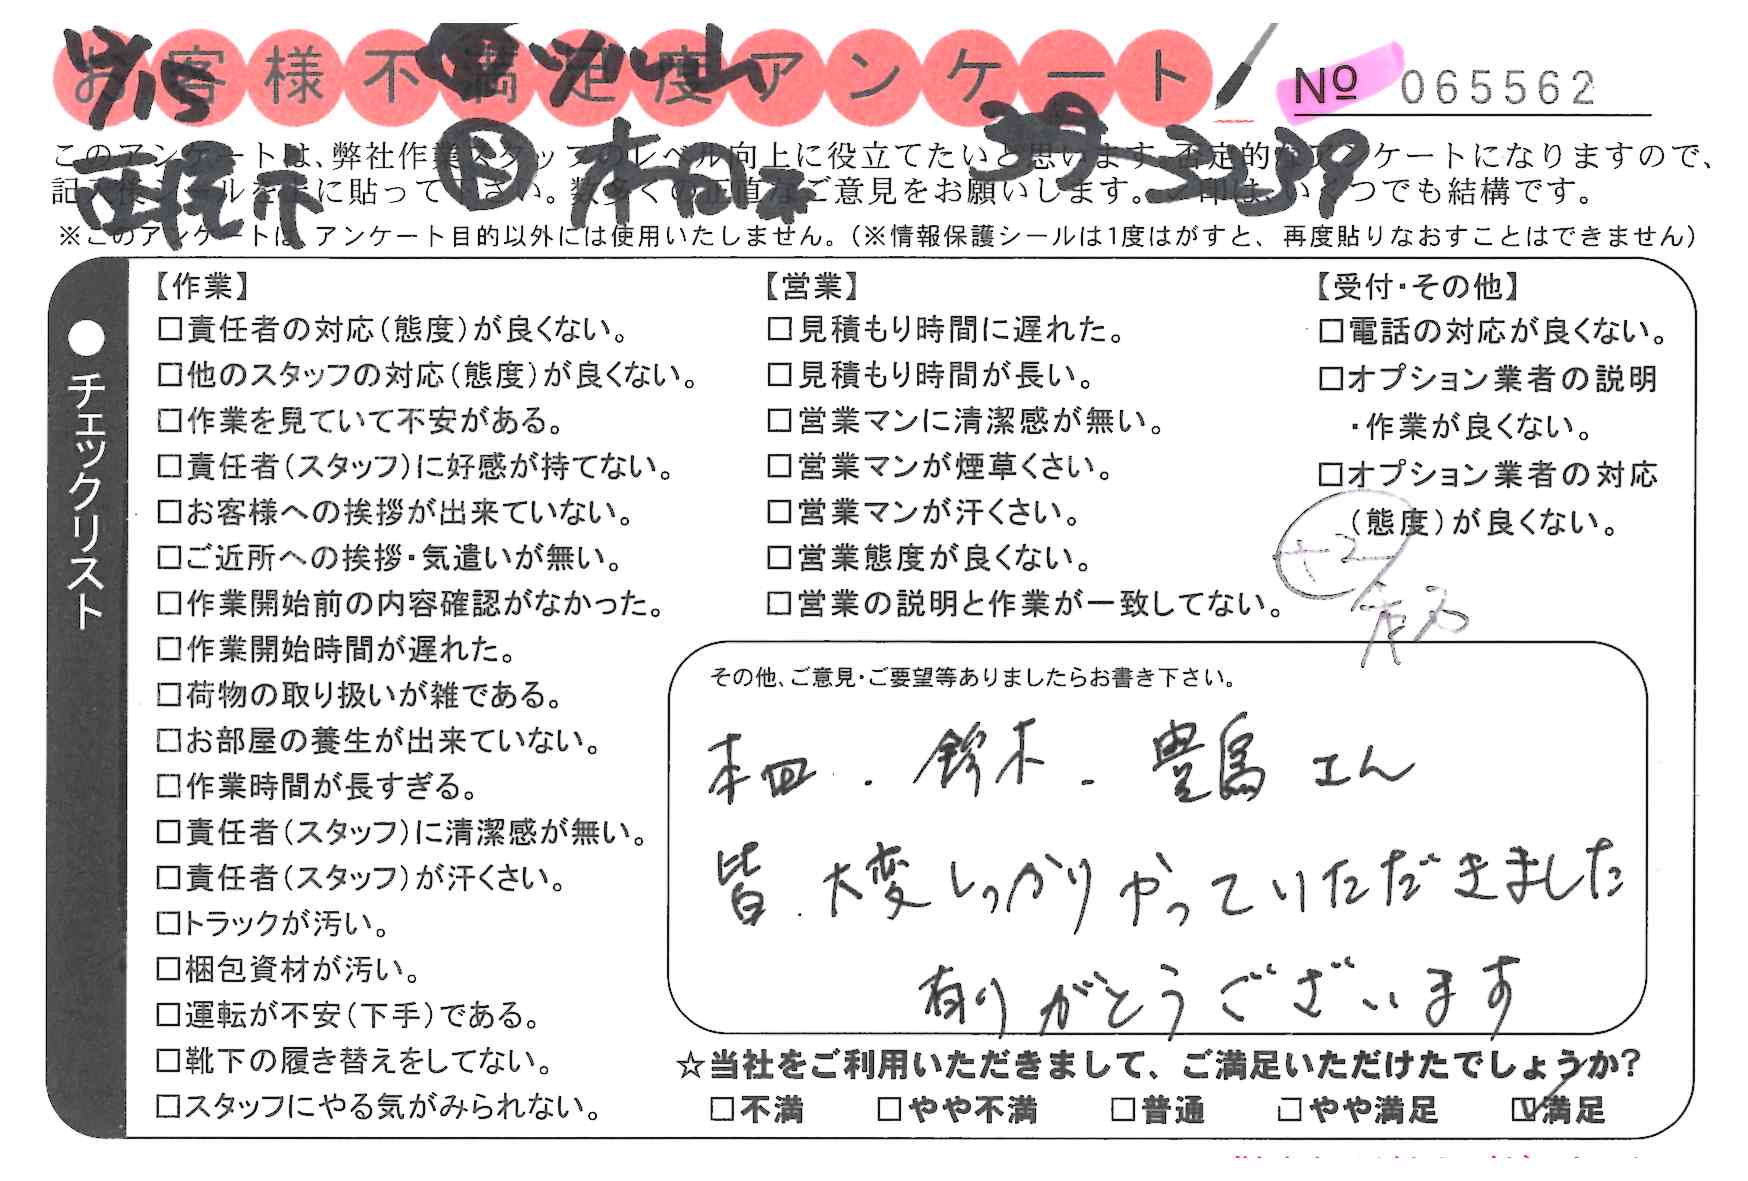 お客様不満足度アンケート
№ 065562
12/15
39-3239
このアンケートは、弊社作業スタッフのレベル向上に役立てたいと思います。否定的なアンケートになりますので、
記入後シールを上に貼って下さい。数多くの正直なご意見をお願いします。レ印は、いくつでも結構です。
※このアンケートは、アンケート目的以外には使用いたしません。(※情報保護シールは1度はがすと、再度貼りなおすことはできません)
●チェックリスト
【作業】
□責任者の対応(態度)が良くない。
□他のスタッフの対応(態度)が良くない。
□作業を見ていて不安がある。
□責任者(スタッフ)に好感が持てない。
□お客様への挨拶が出来ていない。
□ご近所への挨拶・気遣いが無い。
□作業開始前の内容確認がなかった。
□作業開始時間が遅れた。
□荷物の取り扱いが雑である。
□お部屋の養生が出来ていない。
□作業時間が長すぎる。
□責任者(スタッフ)に清潔感が無い。
□責任者(スタッフ)が汗くさい。
□トラックが汚い。
□梱包資材が汚い。
□運転が不安(下手)である。
□靴下の履き替えをしてない。
□スタッフにやる気がみられない。
【営業】
□見積もり時間に遅れた。
□見積もり時間が長い。
□営業マンに清潔感が無い。
□営業マンが煙草くさい。
□営業マンが汗くさい。
□営業態度が良くない。
□営業の説明と作業が一致してない。
【受付・その他】
□電話の対応が良くない。
□オプション業者の説明
・作業が良くない。
□オプション業者の対応
(態度)が良くない。
+2
その他、ご意見・ご要望等ありましたらお書き下さい。
本皿.鈴木.豊島さん
皆.大変しっかりやっていただきました
有りがとうございます
☆当社をご利用いただきまして、ご満足いただけたでしょうか?
□不満 □やや不満 □普通 □やや満足 ☑満足